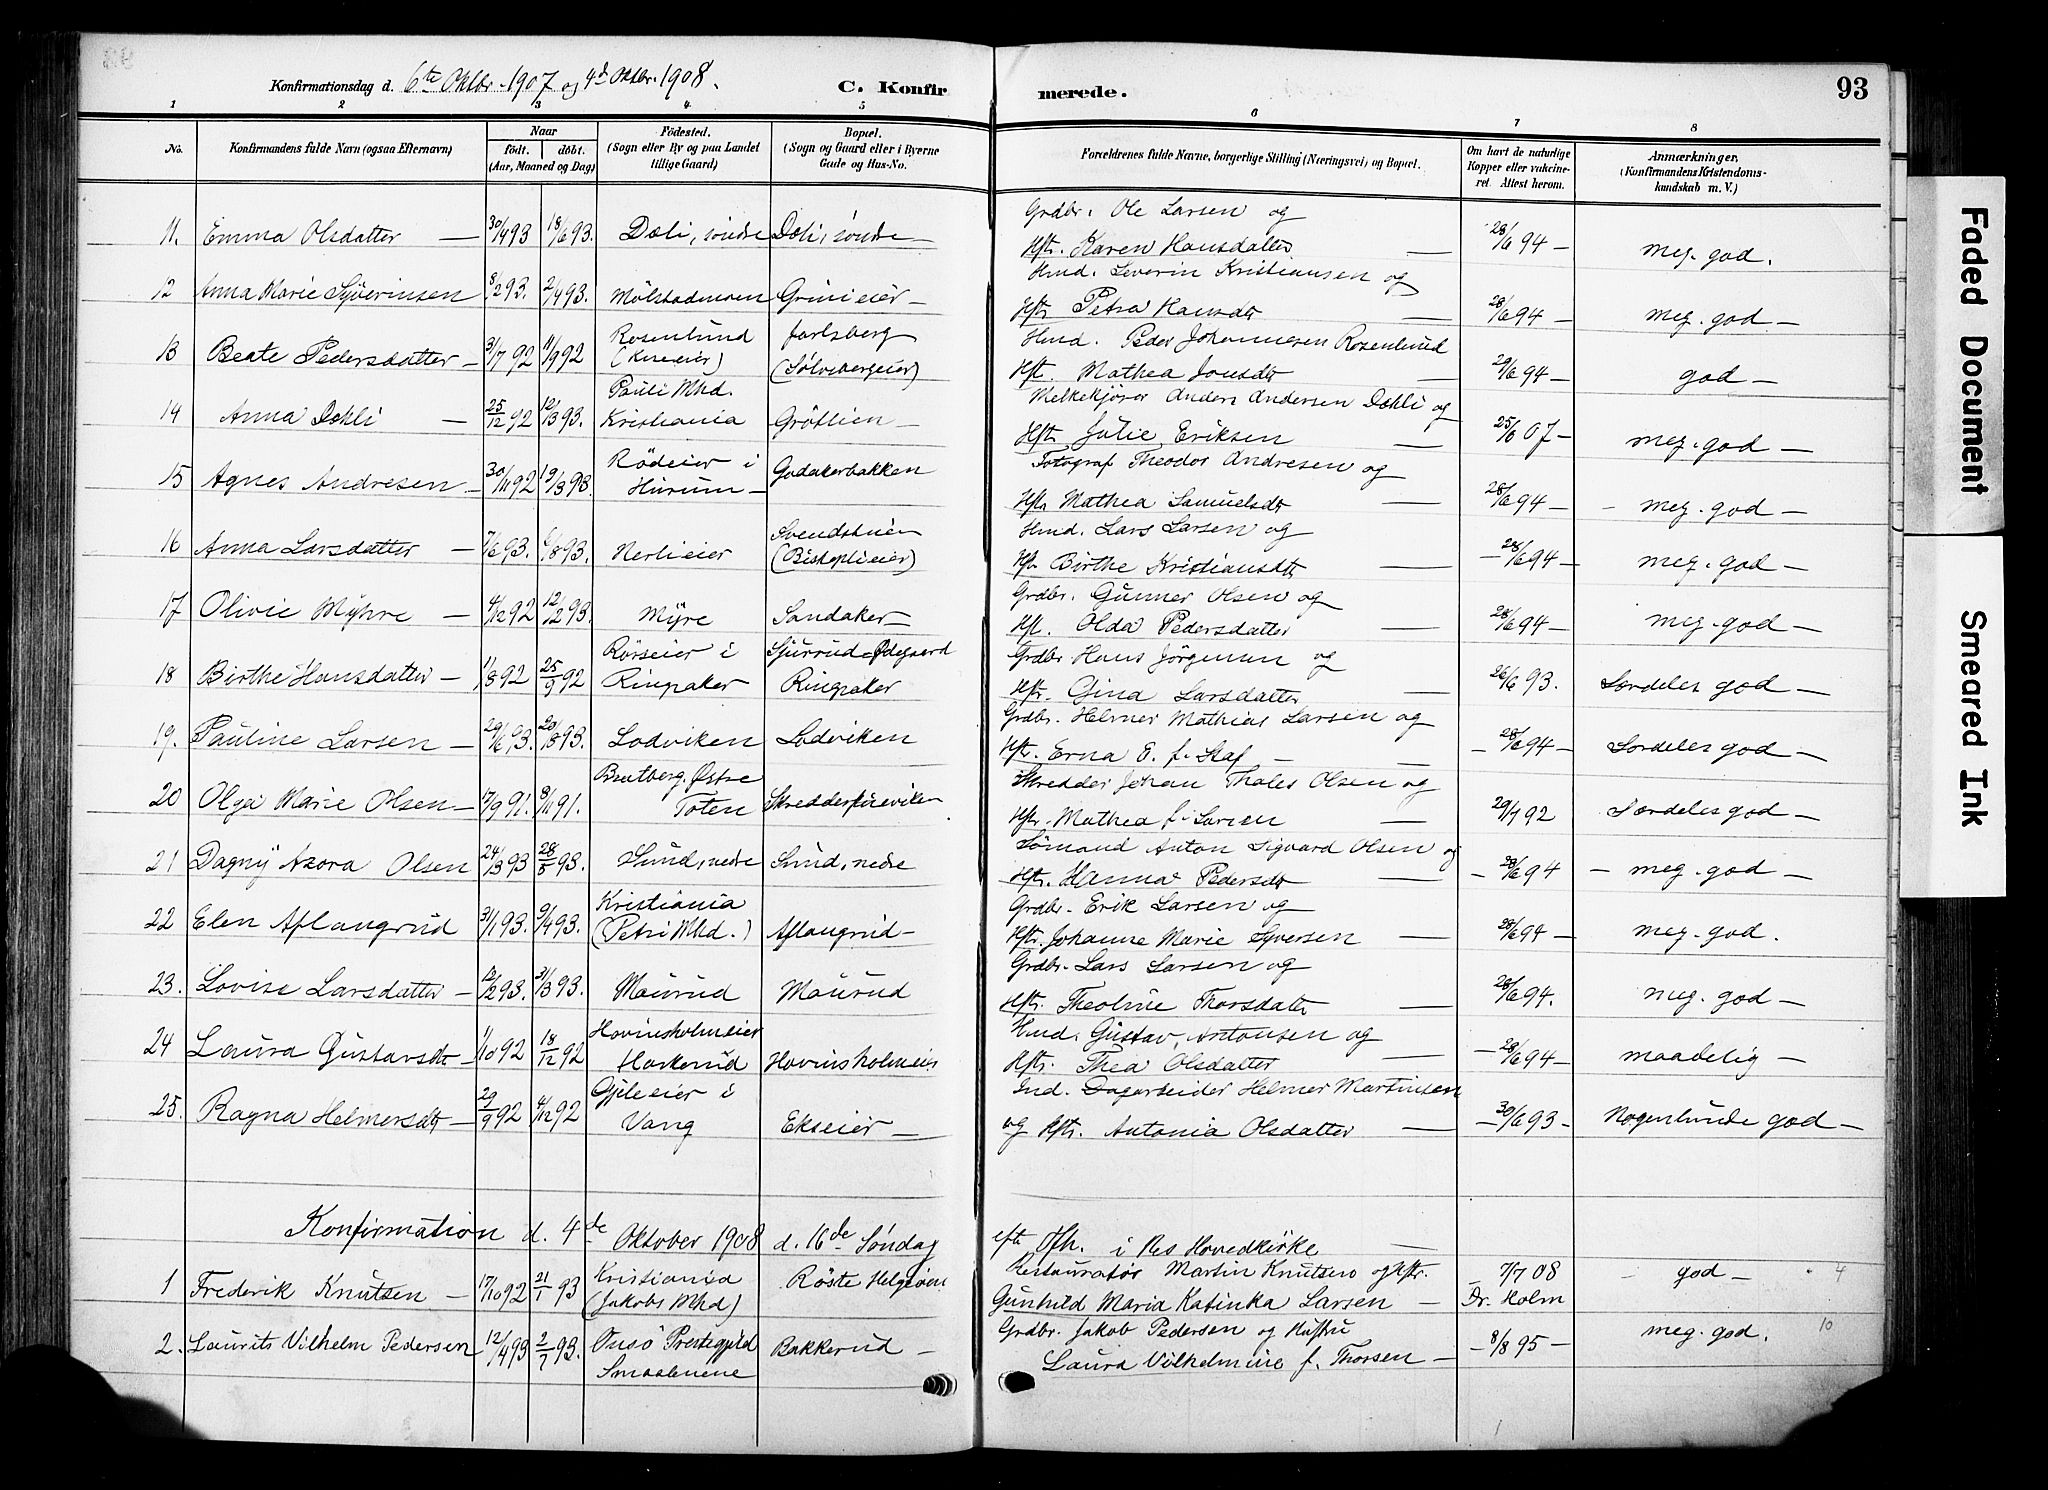 Konfirmationsdag d. 6te Oktbr. 1907 og 4d Oktbr. 1908.
C. Konfirmerede.
93
1 2 3 4 5 6 7 8
No.
Konfirmandens fulde Navn (ogsaa Efternavn)
Naar
født. døbt.
(Aar, Maaned og Dag)
Fødested.
(Sogn eller By og paa Landet tillige Gaard.)
Bopæl.
(Sogn og Gaard eller i Byerne Gade og Hus-No.
Forældrenes fulde Navne, borgerlige Stilling (Næringsvei) og Bopæl.
Om havt de naturlige Kopper eller vakcineret. Attest herom.
Anmærkninger. (Konfirmandens Kristendomskundskab m. V.)
Grdbr. Ole Larsen og
11. Emma Olsdatter — 30/4 93 18/6 93. Dæli, söndre Dæli, söndre — Hstr. Karen Hansdatter — 28/6 94 — meg. god.
Hmd. Severin Kristiansen og
12 Anna Marie Syverinsen 8/2 93. 2/4 93. Mölstadmoen Grinieier — Hstr Petra Hansdtr — 28/6 94 — meg. god —
Rosenlund Jarlsberg Hmd. Peder Johannesen Rosenlund
13 Beate Pedersdatter — 31/7 92 11/9 92 (Sölvsbergeier) Hst. Mathea Jonsdtr — 29/6 94 — god —
Pauli Mhd. Melkekjörer Anders Andersen Dæhli og
14 Anna Dæhli — 25/12 92 12/3 93. Kristiania Gröttlien — Hstr Julie Eriksen — 25/6 07 — meg. god —
Rödeier i Godakerbakken Fotograf Theodor Andresen og
15 Agnes Andresen — 30/11 92 19/3 93. Hurum — Hstr Mathea Samuelsdtr 28/6 94 — — meg. god —
Svendstuen Hmd. Lars Larsen og
16 Anna Larsdatter — 7/6 93. 6/8 93. Nerlieier (Biskoplieier) Hstr Birthe Kristiansdtr — — 28/6 94 — meg. god —
Grdbr. Gunner Olsen og
17 Olivie Myhre — 4/12 92 12/2 93. Myre Sandaker — Hst. Olda Pedersdatter — 28/6 94 — meg. god —
Rörseier i Sjurrud-Ödegaard Grdbr Hans Jörgensen og
18 Birthe Hansdatter — 11/8 92 25/9 92 Ringsaker Ringsaker Hstr. Gina Larsdatter — 26/6 93. Særdeles god —
Grdbr. Helmer Mathias Larsen og
19. Pauline Larsen — 29/6 93. 20/8 93. Lodviken Lodviken Hstr. Erna E. f. Staf — — 28/6 94 — Særdeles god —
Bratberg. Östre Skredder Johan Thales Olsen og
20 Olga Marie Olsen — 17/9 91. 8/11 91. Toten Hstr. Mathea f. Larsen — 29/7 92 Særdeles god —
Sömand Anton Sigvard Olsen og
21 Dagny Azora Olsen 24/3 93 28/5 93. Sund, nedre Sund, nedre Hstr. Hanna Pedersdtr — — 28/6 94 — meg. god —
Kristiania Grdbr. Erik Larsen og
22 Elen Aflangrud 31/1 93. 9/4 93. (Petri Mhd.) Aflangrud — Hstr. Johanne Marie Syversen — 28/6 94 — meg. god.
Grdbr. Lars Larsen og
23. Lovise Larsdatter — 12/2 93. 31/3 93. Maurud Maurud Hstr. Theoline Thorsdatter — 28/6 94. meg. god —
Hovinsholmeier Hmd. Gustav Antonsen og
24 Laura Gustavsdtr — 11/10 92 18/12 92 Hovinsholmeier Hstr. Thea Olsdatter — — 28/6 94 — maadelig —
Gjileeier i Ind. Dagarbeider Helmer Martinsen
25. Ragna Helmersdtr — 29/9 92 4/12 92 Vang Ekseier — og Hstr. Antonia Olsdatter — — 30/6 93 — Nogenlunde god —
Konfirmation d. 4de Oktober 1908 d. 16de Söndag eft. Tfh. i Nes Hovedkirke —
Kristiania Restauratör Martin Knutsen og Hstr. — 7/7 08
1 Frederik Knutsen — 17/10 92 21/1 93 (Jakobs Mhd) Röste Helgöen Gunhild Maria Katinka Larsen — Dr. Holm — god — 4
Grdbr. Jakob Pedersen og Hustru
2. Laurits Vilhelm Pedersen 12/4 93 2/7 93. Onsö Prestegjeld Bakkerud — Laura Vilhelmine f. Thorsen — — 8/8 95 — meg. god. 10
Smaalenene
Faded Document
Smeared Ink